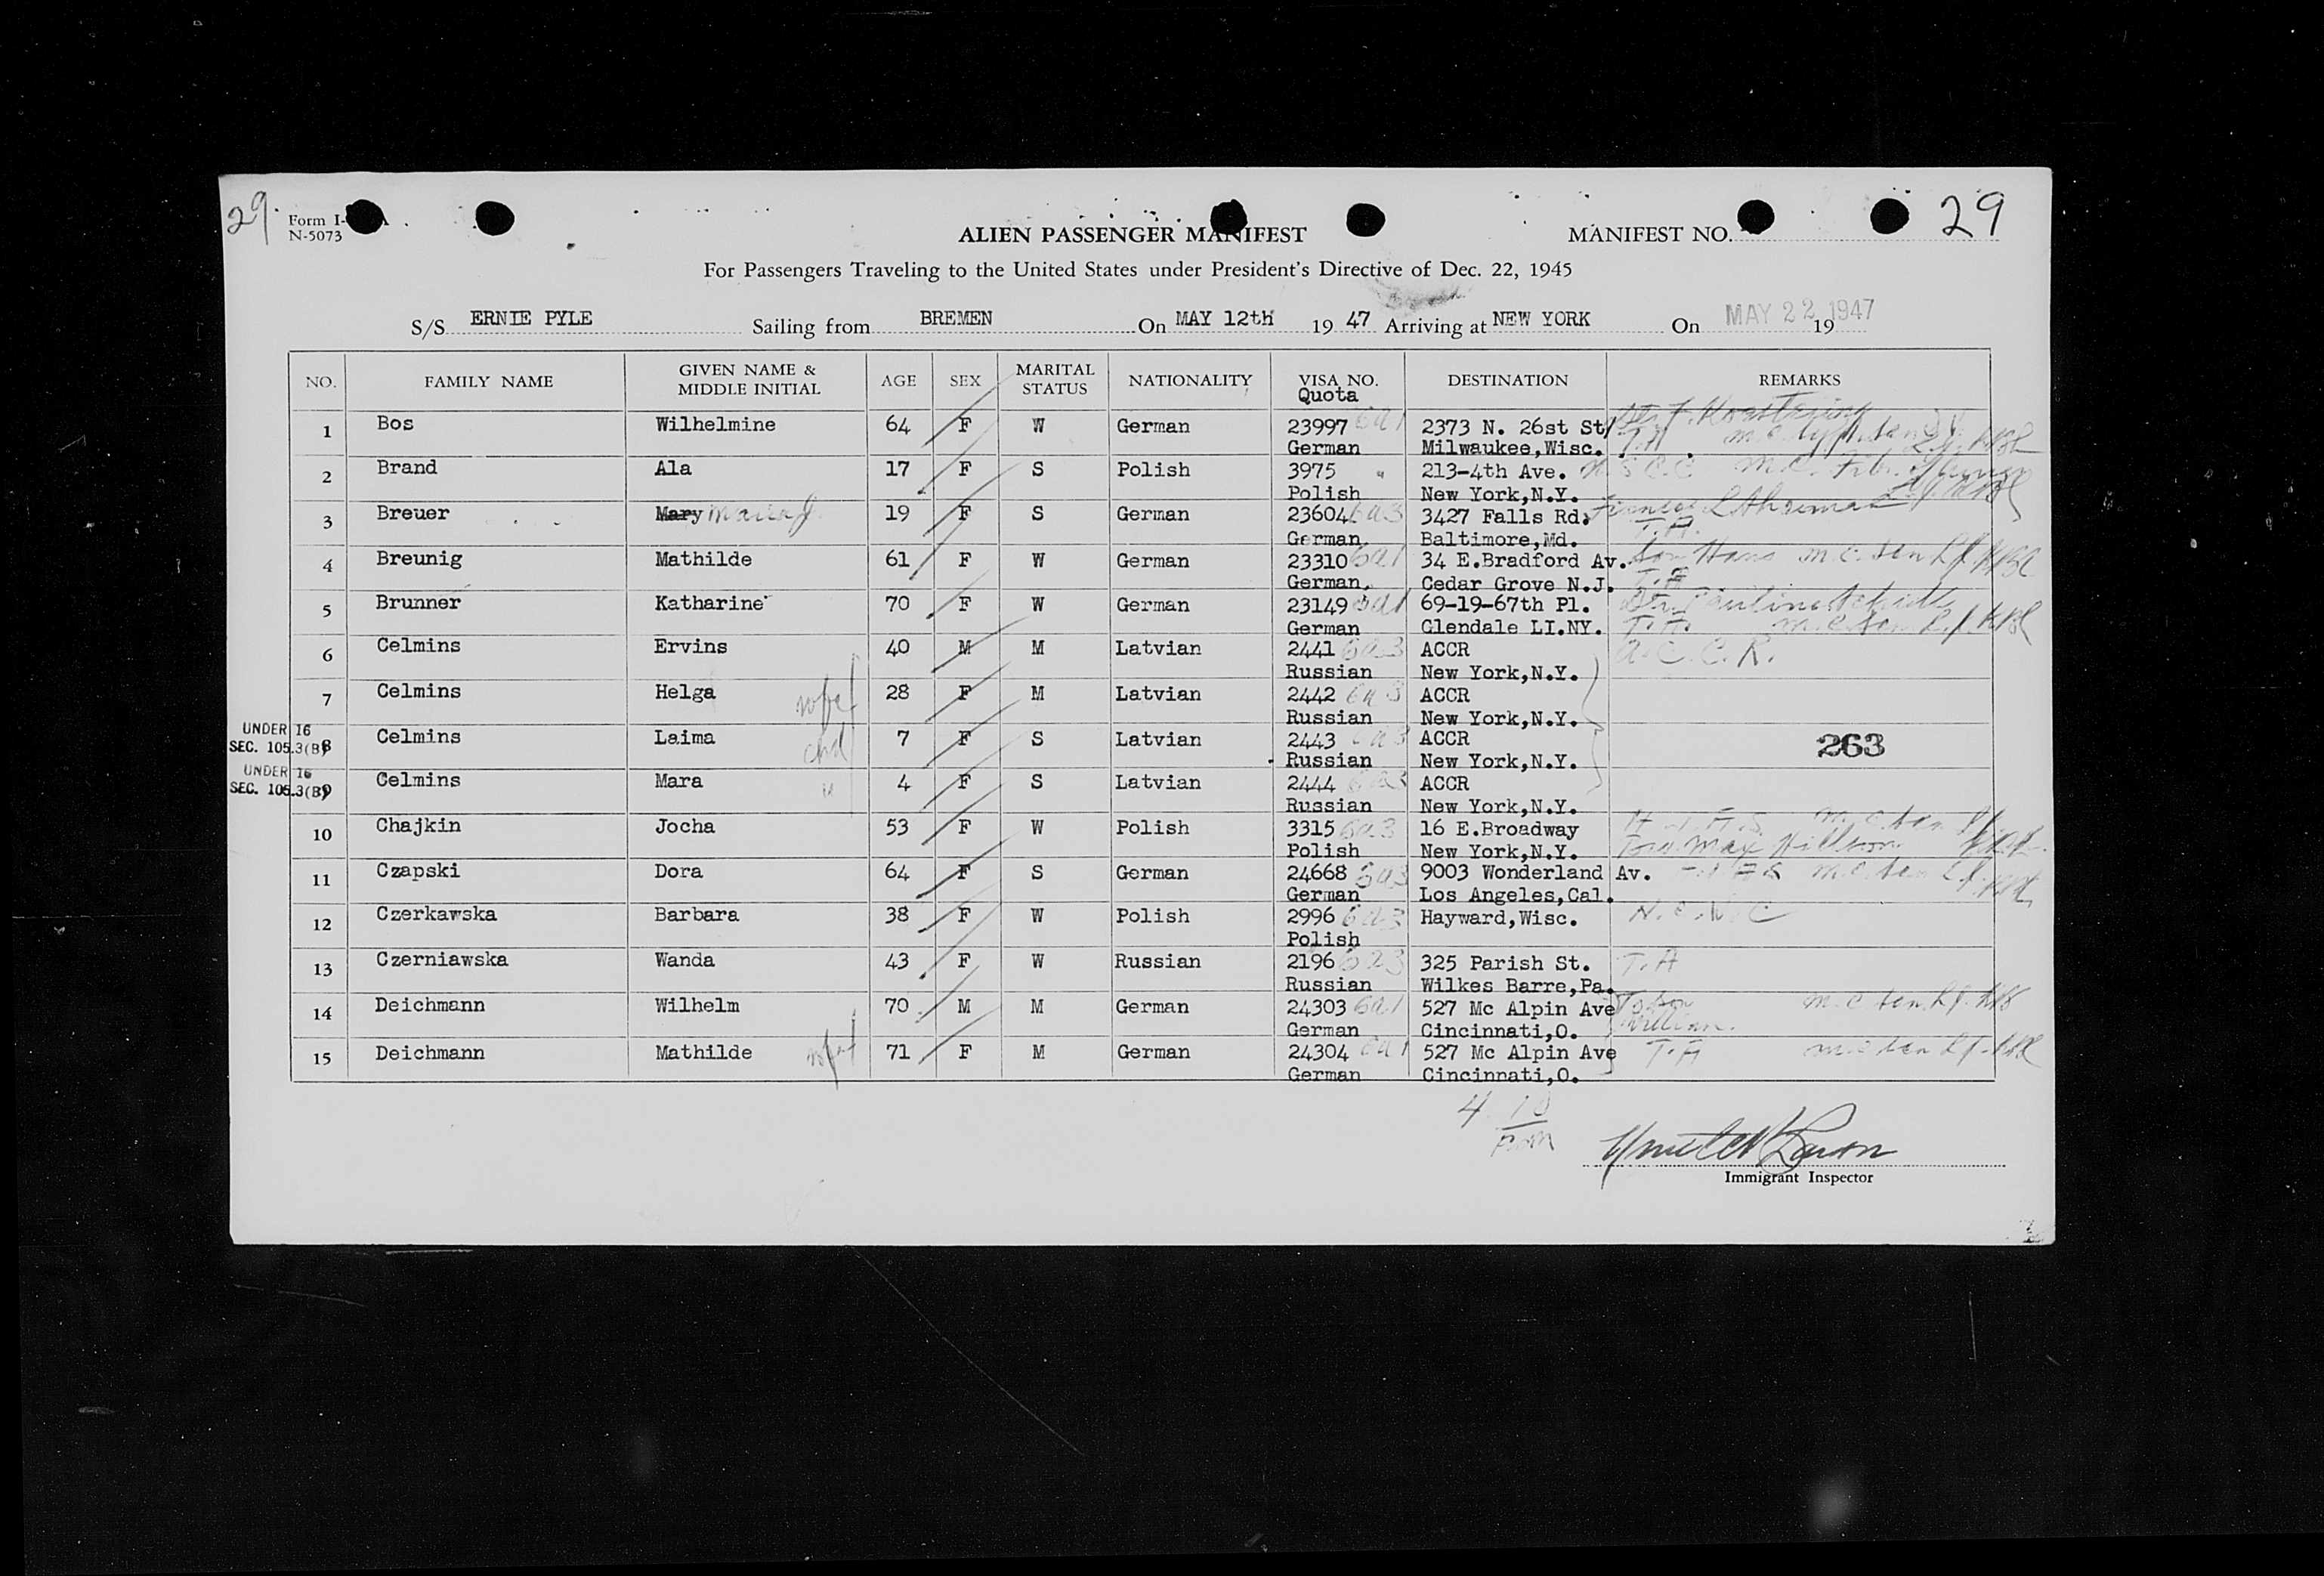 29
Form I-
N-5073
ALIEN PASSENGER MANIFEST
MANIFEST NO. 29
For Passengers Traveling to the United States under President's Directive of Dec. 22, 1945
S/S ERNIE PYLE Sailing from BREMEN On MAY 12th 19 47 Arriving at NEW YORK On MAY 22 1947 19
NO. FAMILY NAME GIVEN NAME & MIDDLE INITIAL AGE SEX MARITAL STATUS NATIONALITY VISA NO. Quota DESTINATION REMARKS
1 Bos Wilhelmine 64 F W German 23997 6a1 2373 N. 26st St/
German Milwaukee,Wisc. T.A
2 Brand Ala 17 F S Polish 3975 " 213-4th Ave.
Polish New York,N.Y.
3 Breuer Mary Maria J. 19 F S German 23604 6a3 3427 Falls Rd.
German Baltimore,Md. T.A.
4 Breunig Mathilde 61 F W German 23310 6a1 34 E.Bradford Av. Son Hans m.c. sen
German Cedar Grove N.J. T.A
5 Brunner Katharine 70 F W German 23149 6a1 69-19-67th Pl. Pauline
German Glendale LI.NY. T.A. m.c. sen
6 Celmins Ervins 40 M M Latvian 2441 6a3 ACCR A.C.C.R.
Russian New York,N.Y.
7 Celmins Helga wife 28 F M Latvian 2442 6a3 ACCR
Russian New York,N.Y.
UNDER 16
SEC. 105.3(B) 8 Celmins Laima chd 7 F S Latvian 2443 6a3 ACCR 263
Russian New York,N.Y.
UNDER 16
SEC. 105.3(B) 9 Celmins Mara " 4 F S Latvian 2444 6a3 ACCR
Russian New York,N.Y.
10 Chajkin Jocha 53 F W Polish 3315 6a3 16 E.Broadway H.I.A.S. m.c. sen
Polish New York,N.Y. Max
11 Czapski Dora 64 F S German 24668 6a3 9003 Wonderland Av. m.c. sen
German Los Angeles,Cal.
12 Czerkawska Barbara 38 F W Polish 2996 6a3 Hayward,Wisc. N.C.W.C
Polish
13 Czerniawska Wanda 43 F W Russian 2196 6a3 325 Parish St. T.A
Russian Wilkes Barre,Pa.
14 Deichmann Wilhelm 70 M M German 24303 6a1 527 Mc Alpin Ave To son m.c sen
German Cincinnati,O. William.
15 Deichmann Mathilde wife 71 F M German 24304 6a1 527 Mc Alpin Ave T.A m.c sen
German Cincinnati,O.
4 10
P.M
Immigrant Inspector